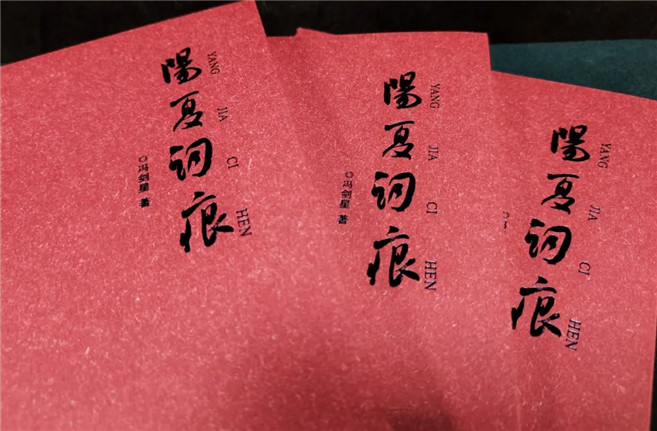 陽夏词痕
YANG JIA CI HEN
◎冯剑星 著
陽夏词痕
YANG JIA CI HEN
◎冯剑星 著
陽夏词痕
YANG JIA CI HEN